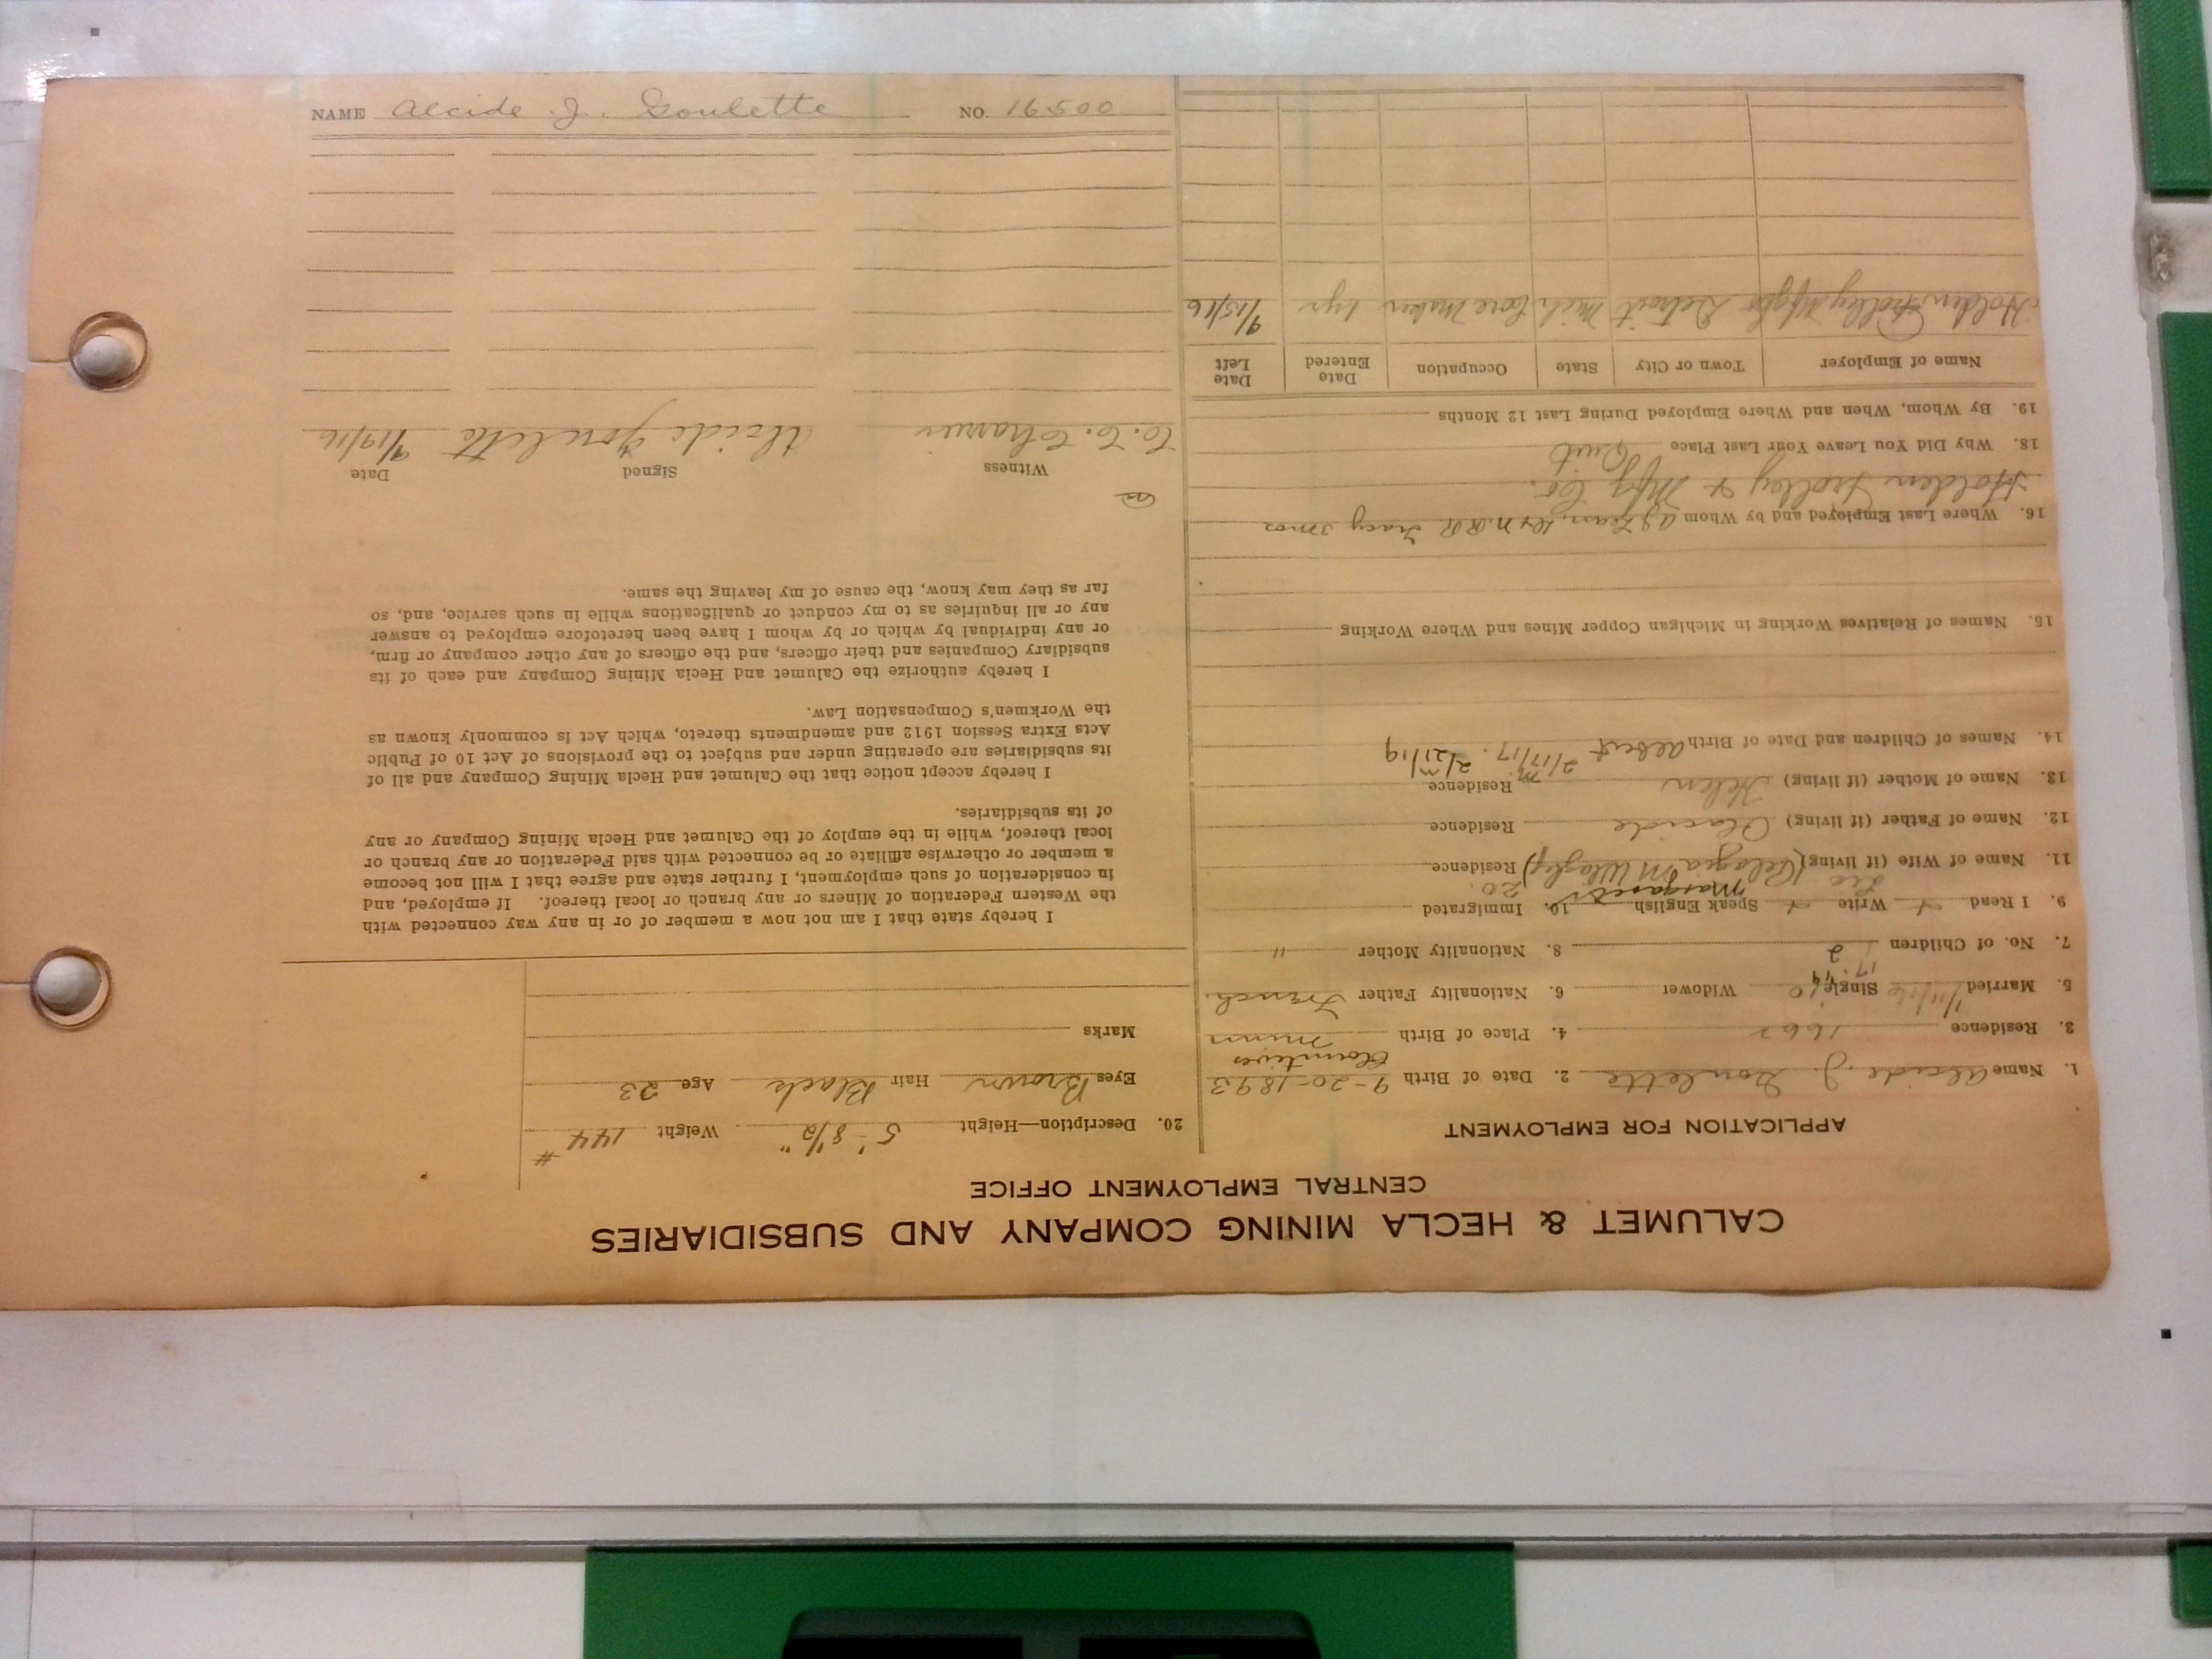 CALUMET & HECLA MINING COMPANY AND SUBSIDIARIES
CENTRAL EMPLOYMENT OFFICE
APPLICATION FOR EMPLOYMENT
1. Name Alcide J. Goulette 2. Date of Birth 9-20-1893
3. Residence 1667 4. Place of Birth Minn
5. Married Single Widower 6. Nationality Father French
7. No. of Children 2 8. Nationality Mother "
9. I Read Write Speak English 10. Immigrated
11. Name of Wife (if living) Residence
12. Name of Father (if living) Placide Residence
13. Name of Mother (if living) Helen Residence
14. Names of Children and Date of Birth Albert 2/17/17. 2/21/19
15. Names of Relatives Working in Michigan Copper Mines and Where Working
16. Where Last Employed and by Whom
Holden Trolley & Mfg Co.
18. Why Did You Leave Your Last Place Quit
19. By Whom, When and Where Employed During Last 12 Months
Name of Employer Town or City State Occupation Date Entered Date Left
Holden Trolley Mfg Co Detroit Mich Core Maker 1 yr 9/15/16
20. Description—Height 5' 8 1/2" Weight 144#
Eyes Brown Hair Black Age 23
Marks
I hereby state that I am not now a member of or in any way connected with
the Western Federation of Miners or any branch or local thereof. If employed, and
in consideration of such employment, I further state and agree that I will not become
a member or otherwise affiliate or be connected with said Federation or any branch or
local thereof, while in the employ of the Calumet and Hecla Mining Company or any
of its subsidiaries.
I hereby accept notice that the Calumet and Hecla Mining Company and all of
its subsidiaries are operating under and subject to the provisions of Act 10 of Public
Acts Extra Session 1912 and amendments thereto, which Act is commonly known as
the Workmen's Compensation Law.
I hereby authorize the Calumet and Hecla Mining Company and each of its
subsidiary Companies and their officers, and the officers of any other company or firm,
or any individual by which or by whom I have been heretofore employed to answer
any or all inquiries as to my conduct or qualifications while in such service, and, so
far as they may know, the cause of my leaving the same.
Witness Signed Date
Alcide Goulette 9/19/16
NAME Alcide J. Goulette NO. 16500